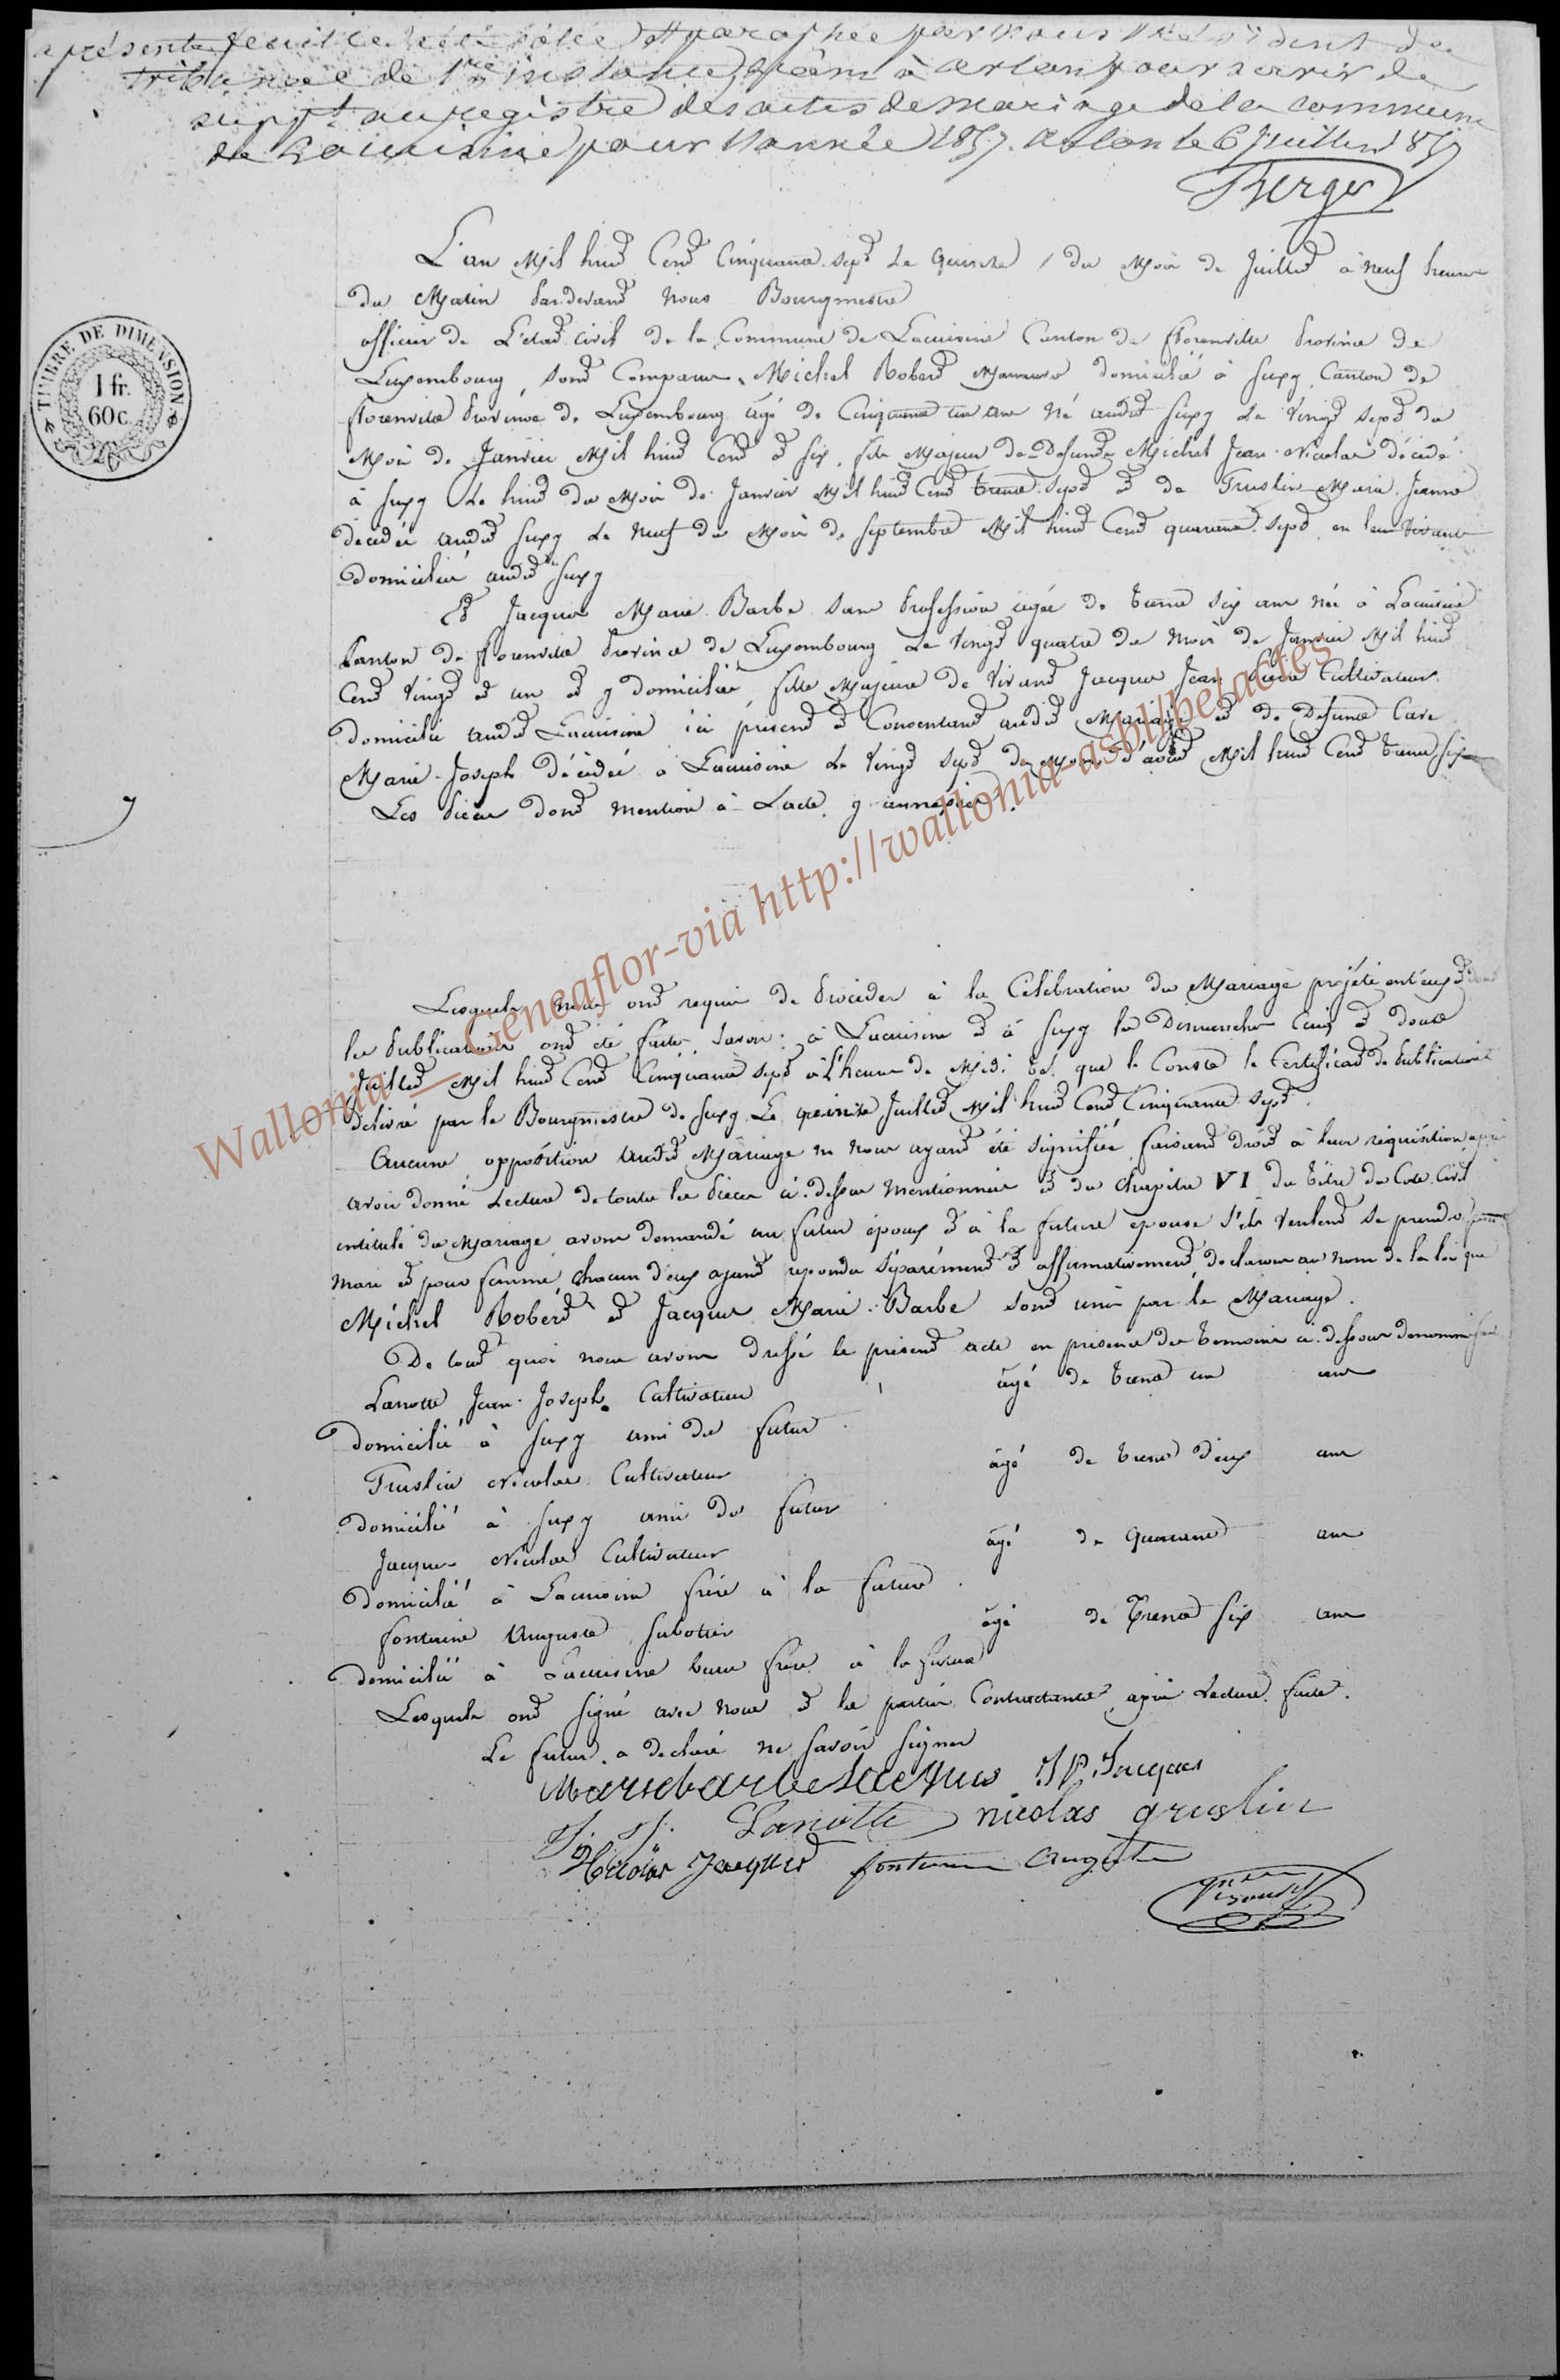 présente feuille été côtée et paraphée par nous Président du
tribunal de 1re instance séant à Arlon pour servir de
suppt au registre des actes de mariage de la commune
de Lacuisine pour l'année 1857. Arlon le 6 Juillet 1857
Berger
TIMBRE DE DIMENSION
1 fr.
60 c.
L'an Mil huit Cent Cinquante sept Le Quinze / du Mois de Juillet à neuf heures
du Matin Pardevant Nous Bourgmestre
officier de L'état civil de la Commune de Lacuisine Canton de florenville Province de
Luxembourg, sont Comparus, Michel Robert Manœuvre domicilié à Suxy Canton de
florenville Province de Luxembourg âgé de Cinquante un ans Né audit Suxy Le Vingt sept du
Mois de Janvier Mil huit Cent et six, fils Majeur de Défunts Michel Jean Nicolas décédé
à Suxy Le huit du Mois de Janvier Mil huit Cent trente sept et de Gruslin Marie Jeanne
décédée audit Suxy Le Neuf du Mois de Septembre Mil huit Cent quarante sept, en leur Vivant
Domiciliés audit Suxy
Et Jacques Marie Barbe Sans Profession âgée de trente six ans Née à Lacuisine
Canton de florenville Province de Luxembourg Le Vingt quatre du Mois de Janvier Mil huit
Cent Vingt et un et y domiciliée, fille Majeure de Vivant Jacques Jean Pierre Cultivateur
domicilié audit Lacuisine ici présent et Consentant audit Mariage et de Défunte
Marie Joseph Décédée à Lacuisine Le Vingt sept du Mois d'août Mil huit Cent trente six
Les Pièces dont mention à L'acte y annexées
Lesquels nous ont requis de Procéder à la Célébration du Mariage projeté entr'eux et dont
les Publications ont été faites Savoir: à Lacuisine et à Suxy les Dimanches Cinq et Douze
Juillet Mil huit Cent Cinquante sept à L'heure de Midi tel que le Conste le Certificat de Publications
délivré par le Bourgmestre de Suxy Le quinze Juillet Mil huit Cent Cinquante sept.
Aucune opposition audit Mariage ne nous ayant été signifiée, faisant droit à leur réquisition, après
avoir donné Lecture de toutes les Pièces ci-dessus mentionnées et du Chapitre VI du titre du Code Civil
intitulé du Mariage, avons demandé au futur époux et à la future épouse s'ils veulent se prendre pour
mari et pour femme, Chacun d'eux ayant répondu Séparément et affirmativement declarons au nom de la loi que
Michel Robert et Jacques Marie Barbe sont unis par le Mariage.
De tout quoi nous avons dressé le présent acte en présence des témoins ci-dessous dénommés
Lanotte Jean Joseph Cultivateur âgé de trente un ans
domicilié à Suxy ami du futur
Gruslin Nicolas Cultivateur âgé de trente deux ans
domicilié à Suxy ami du futur
Jacques Nicolas Cultivateur âgé de Quarante ans
domicilié à Lacuisine frère à la future
fontaine Auguste Sabotier âgé de Trente six ans
domicilié à Lacuisine beau frère à la future
Lesquels ont signé avec nous et les parties Contractantes après Lecture faite.
Le futur a declaré ne savoir signer
Marie barbe Jacques J P. Jacques
J. J. Lanotte nicolas gruslin
Nicolas Jacques fontaine Auguste
Wallonia — Geneaflor-via http://wallonia-asbl/be/actes